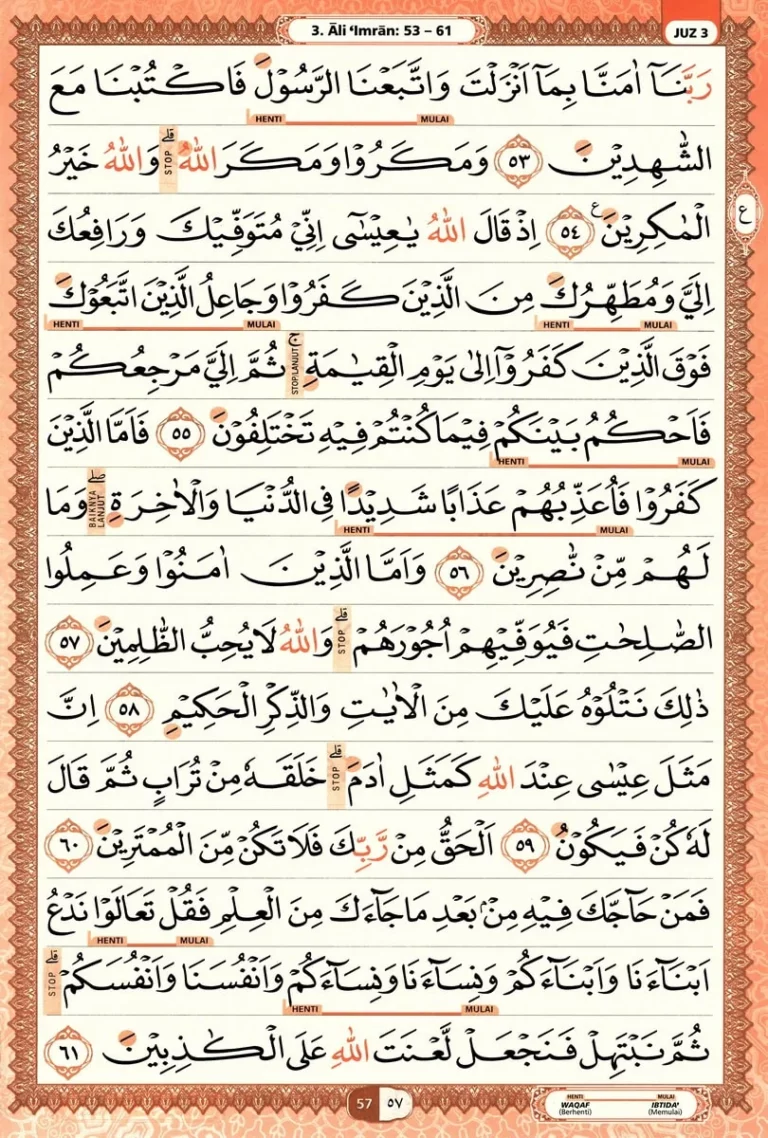 3. Āli ‘Imrān: 53 – 61
JUZ 3
رَبَّنَآ اٰمَنَّا بِمَآ اَنْزَلْتَ وَاتَّبَعْنَا الرَّسُوْلَ فَاكْتُبْنَا مَعَ
HENTI MULAI
الشّٰهِدِيْنَ ٥٣ وَمَكَرُوْا وَمَكَرَ اللّٰهُ ۗ STOP وَاللّٰهُ خَيْرُ
الْمٰكِرِيْنَ ࣖ ٥٤ اِذْ قَالَ اللّٰهُ يٰعِيْسٰٓى اِنِّيْ مُتَوَفِّيْكَ وَرَافِعُكَ
ع
اِلَيَّ وَمُطَهِّرُكَ مِنَ الَّذِيْنَ كَفَرُوْا وَجَاعِلُ الَّذِيْنَ اتَّبَعُوْكَ
HENTI MULAI HENTI MULAI
فَوْقَ الَّذِيْنَ كَفَرُوْٓا اِلٰى يَوْمِ الْقِيٰمَةِ ۚ STOP/LANJUT ثُمَّ اِلَيَّ مَرْجِعُكُمْ
فَاَحْكُمُ بَيْنَكُمْ فِيْمَا كُنْتُمْ فِيْهِ تَخْتَلِفُوْنَ ٥٥ فَاَمَّا الَّذِيْنَ
HENTI MULAI
كَفَرُوْا فَاُعَذِّبُهُمْ عَذَابًا شَدِيْدًا فِى الدُّنْيَا وَالْاٰخِرَةِ ۖ BAIKNYA LANJUT وَمَا
HENTI MULAI
لَهُمْ مِّنْ نّٰصِرِيْنَ ٥٦ وَاَمَّا الَّذِيْنَ اٰمَنُوْا وَعَمِلُوا
الصّٰلِحٰتِ فَيُوَفِّيْهِمْ اُجُوْرَهُمْ ۗ STOP وَاللّٰهُ لَا يُحِبُّ الظّٰلِمِيْنَ ٥٧
ذٰلِكَ نَتْلُوْهُ عَلَيْكَ مِنَ الْاٰيٰتِ وَالذِّكْرِ الْحَكِيْمِ ٥٨ اِنَّ
مَثَلَ عِيْسٰى عِنْدَ اللّٰهِ كَمَثَلِ اٰدَمَ ۗ STOP خَلَقَهٗ مِنْ تُرَابٍ ثُمَّ قَالَ
لَهٗ كُنْ فَيَكُوْنُ ٥٩ اَلْحَقُّ مِنْ رَّبِّكَ فَلَا تَكُنْ مِّنَ الْمُمْتَرِيْنَ ٦٠
فَمَنْ حَاۤجَّكَ فِيْهِ مِنْۢ بَعْدِ مَا جَاۤءَكَ مِنَ الْعِلْمِ فَقُلْ تَعَالَوْا نَدْعُ
HENTI MULAI
اَبْنَاۤءَنَا وَاَبْنَاۤءَكُمْ وَنِسَاۤءَنَا وَنِسَاۤءَكُمْ وَاَنْفُسَنَا وَاَنْفُسَكُمْ ۗ STOP
HENTI MULAI
ثُمَّ نَبْتَهِلْ فَنَجْعَلْ لَّعْنَتَ اللّٰهِ عَلَى الْكٰذِبِيْنَ ٦١
57 ٥٧
HENTI MULAI
WAQAF IBTIDA'
(Berhenti) (Memulai)